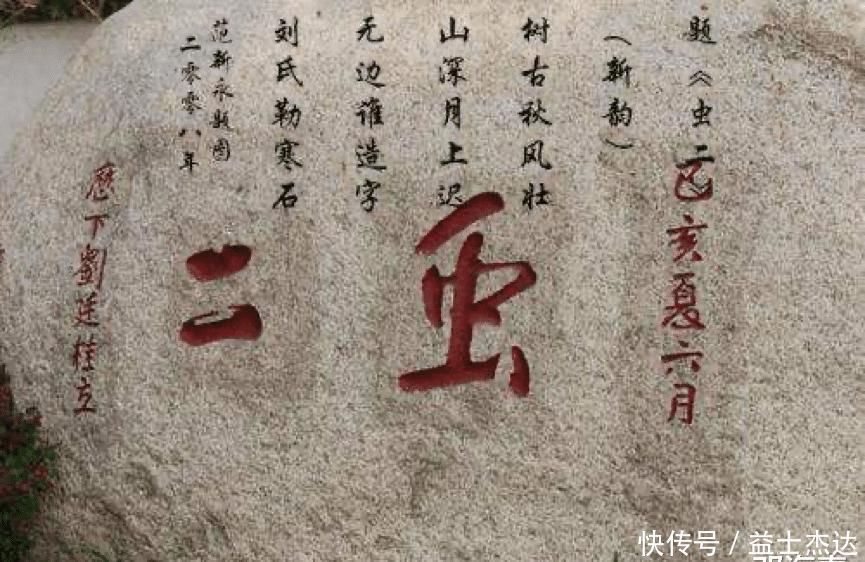 题《虫二
（新韵）
树古秋风壮
山深月上迟
无边谁造字
刘氏勒寒石
范新永题图
二零零八年
己亥夏六月
虫二
歷下劉廷桂立
快传号 / 益士杰达